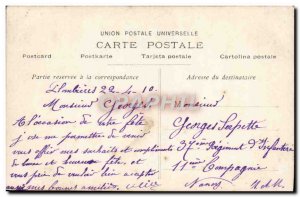 UNION POSTALE UNIVERSELLE
CARTE POSTALE
Postcard Postkarte Tarjeta postale Cartolina postale
Partie reservée à la correspondance
Adresse du destinataire
22-4-10
Monsieur Georges
A l'occasion de votre fête
je me permettre de venir
vous offrir mes souhaits et compliments
de bonne et heureuse fête, et
vous prie de vouloir bien accepter
mes
Monsieur
Georges
37ème Régiment d'Infanterie
11ème Compagnie
Nancy M & M